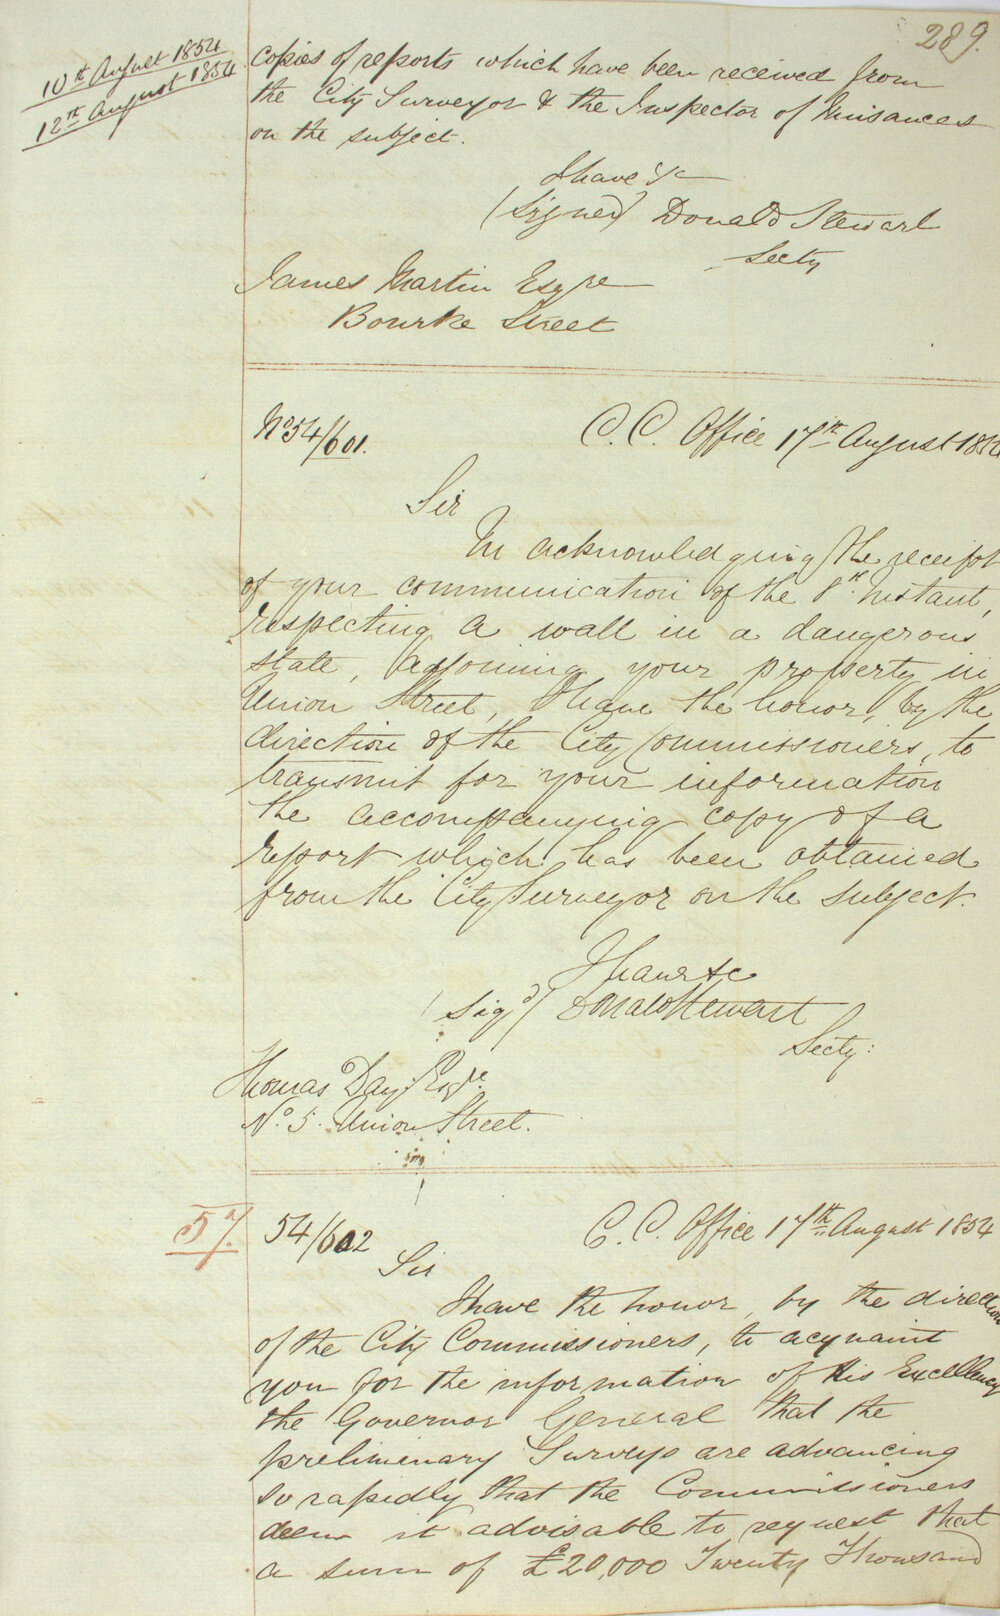 289.
10th August 1854
12th August 1854
copies of reports which have been received from
the City Surveyor & the Inspector of Nuisances
on the subject.
I have &c
(Signed) Donald Stewart
Secty
James Martin Esqre
Bourke Street
No 54/601.
C. C. Office 17th August 1854
Sir
In acknowledging the receipt
of your communication of the 8th Instant,
respecting a wall in a dangerous
state, adjoining your property in
Union Street, I have the honor, by the
direction of the City Commissioners, to
transmit for your information
the accompanying copy of a
report which has been obtained
from the City Surveyor on the subject.
I have &c
(Sigd) Donald Stewart
Secty:
Thomas Day Esqre.
No. 5. Union Street.
57.
54/602
C. C. Office 17th August 1854
Sir
I have the honor, by the direction
of the City Commissioners, to acquaint
you for the information of His Excellency
the Governor General that the
preliminary Surveys are advancing
so rapidly that the Commissioners
deem it advisable to request that
a sum of £20,000 Twenty Thousand